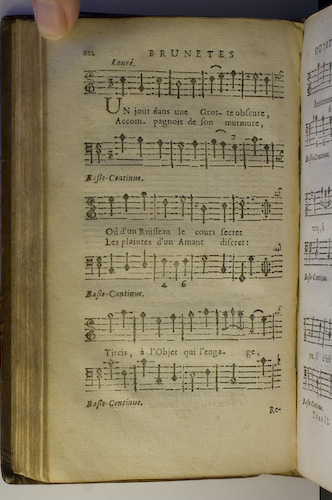 222 BRUNETES
Louré.
UN jour dans une Grot- te obscure,
Accom- pagnoit de son murmure,
7
Basse-Continue.
Où d'un Ruisseau le cours secret
Les plaintes d'un Amant discret:
4 6
Basse-Continue.
Tircis, à l'Objet qui l'enga- ge,
Basse-Continue.
Re-